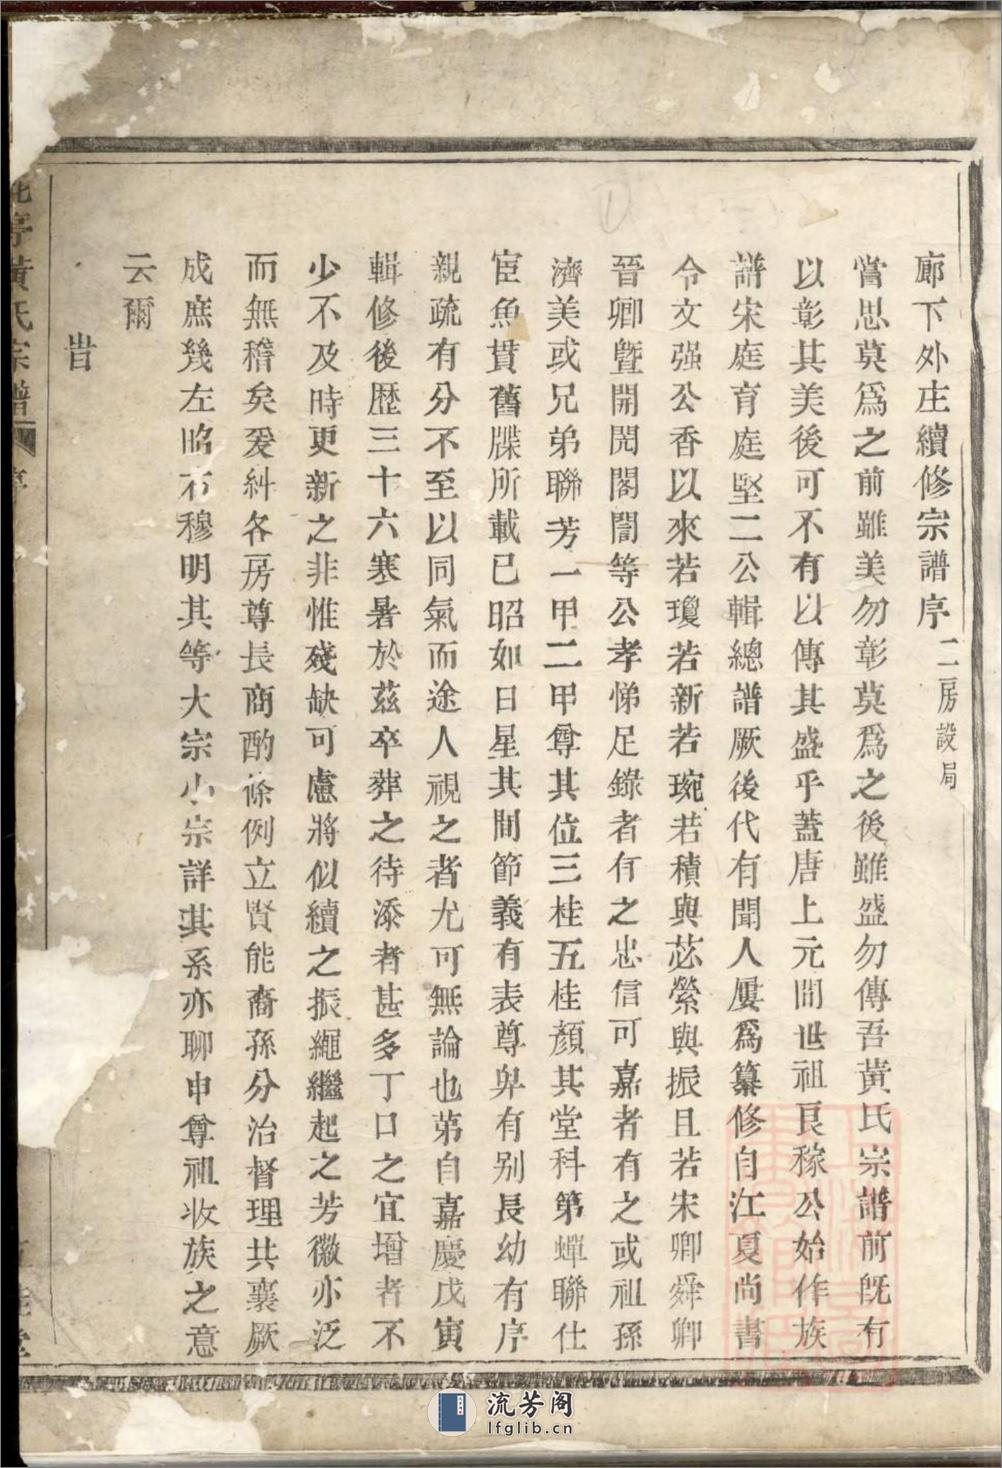 廊下外庄續修宗譜序 二房設局
嘗思莫爲之前雖美勿彰莫爲之後雖盛勿傳吾黃氏宗譜前既有
以彰其美後可不有以傳其盛乎蓋唐上元間世祖良稼公始作族
譜宋庭育庭堅二公輯總譜厥後代有聞人屢爲纂修自江夏尚書
令文强公香以來若瓊若新若琬若積與苾縈與振且若宋卿舜卿
晉卿曁開閱閣誾等公孝悌足錄者有之忠信可嘉者有之或祖孫
濟美或兄弟聯芳一甲二甲尊其位三桂五桂顏其堂科第蟬聯仕
宦魚貫舊牒所載已昭如日星其間節義有表尊卑有别長幼有序
親疏有分不至以同氣而途人視之者尤可無論也第自嘉慶戊寅
輯修後歷三十六寒暑於茲卒葬之待添者甚多丁口之宜增者不
少不及時更新之非惟殘缺可慮將似續之振繩繼起之芳徽亦泛
而無稽矣爰糾各房尊長商酌條例立賢能裔孫分治督理共襄厥
成庶幾左昭右穆明其等大宗小宗詳其系亦聊申尊祖收族之意
云爾
旹
亭黃氏宗譜
流芳阁
lfglib.cn